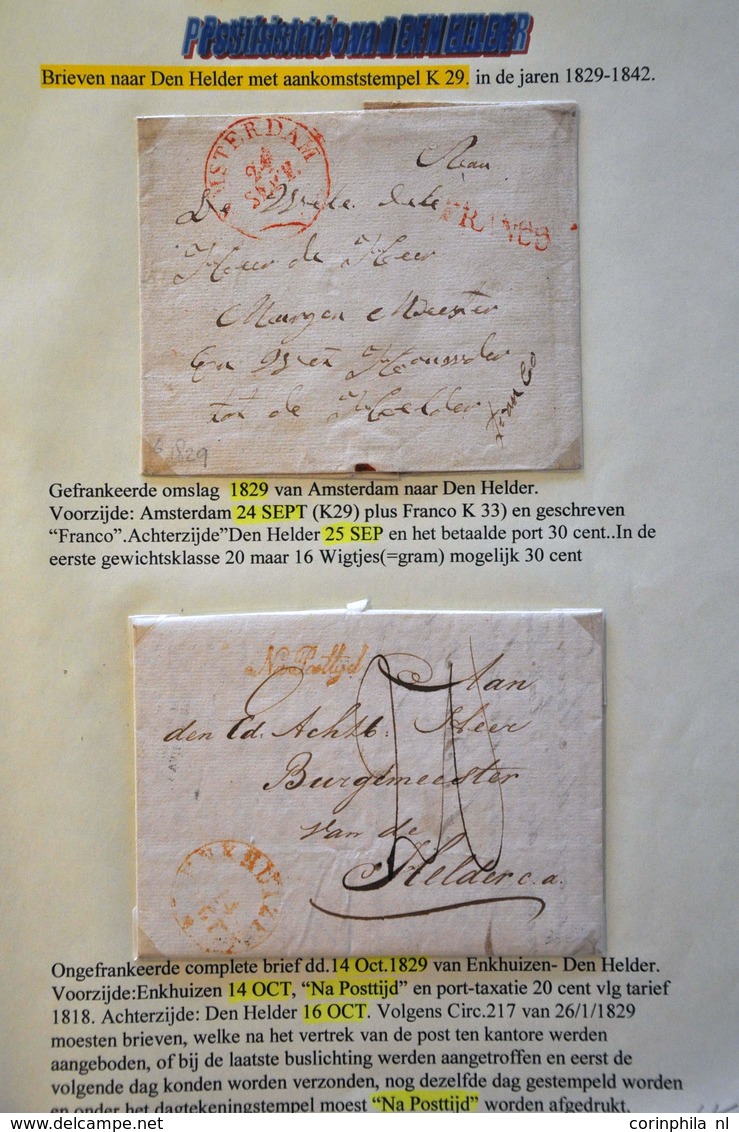 Posthistorie van DEN HELDER
Brieven naar Den Helder met aankomststempel K 29. in de jaren 1829-1842.
AMSTERDAM
24
SEPT.
Aan
De
FRANCO
Heer de Heer
Meester
tot de Helder
franco
1829
Gefrankeerde omslag 1829 van Amsterdam naar Den Helder.
Voorzijde: Amsterdam 24 SEPT (K29) plus Franco K 33) en geschreven
“Franco”.Achterzijde”Den Helder 25 SEP en het betaalde port 30 cent..In de
eerste gewichtsklasse 20 maar 16 Wigtjes(=gram) mogelijk 30 cent
Na Posttijd
Aan
den Ed. Achtb. Heer
Burgemeester
van de
Helder c.a.
ENKHUIZEN
14
OCT
Ongefrankeerde complete brief dd.14 Oct.1829 van Enkhuizen- Den Helder.
Voorzijde:Enkhuizen 14 OCT, “Na Posttijd” en port-taxatie 20 cent vlg tarief
1818. Achterzijde: Den Helder 16 OCT. Volgens Circ.217 van 26/1/1829
moesten brieven, welke na het vertrek van de post ten kantore werden
aangeboden, of bij de laatste buslichting werden aangetroffen en eerst de
volgende dag konden worden verzonden, nog dezelfde dag gestempeld worden
en onder het dagtekeningstempel moest “Na Posttijd” worden afgedrukt.
corinphila nl